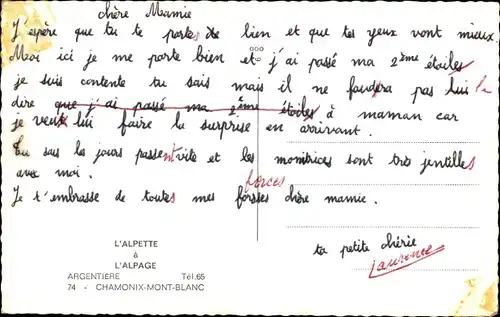 chère Mamie
J'espère que tu te portes de bien et que tes yeux vont mieux.
Moi ici je me porte bien et j'ai passé ma 2ème étoile
je suis contente tu sais mais il ne faudra pas lui le
dire que j'ai passé ma 2ème étoiles à maman car
je veux lui faire la surprise en arrivant.
Tu sais les jours passent vite et les monitrices sont très jentilles
avec moi.
forces
Je t'embrasse de toutes mes forsses chère mamie.
ta petite chérie
Laurence
L'ALPETTE
à
L'ALPAGE
ARGENTIERE Tél.65
74 - CHAMONIX-MONT-BLANC